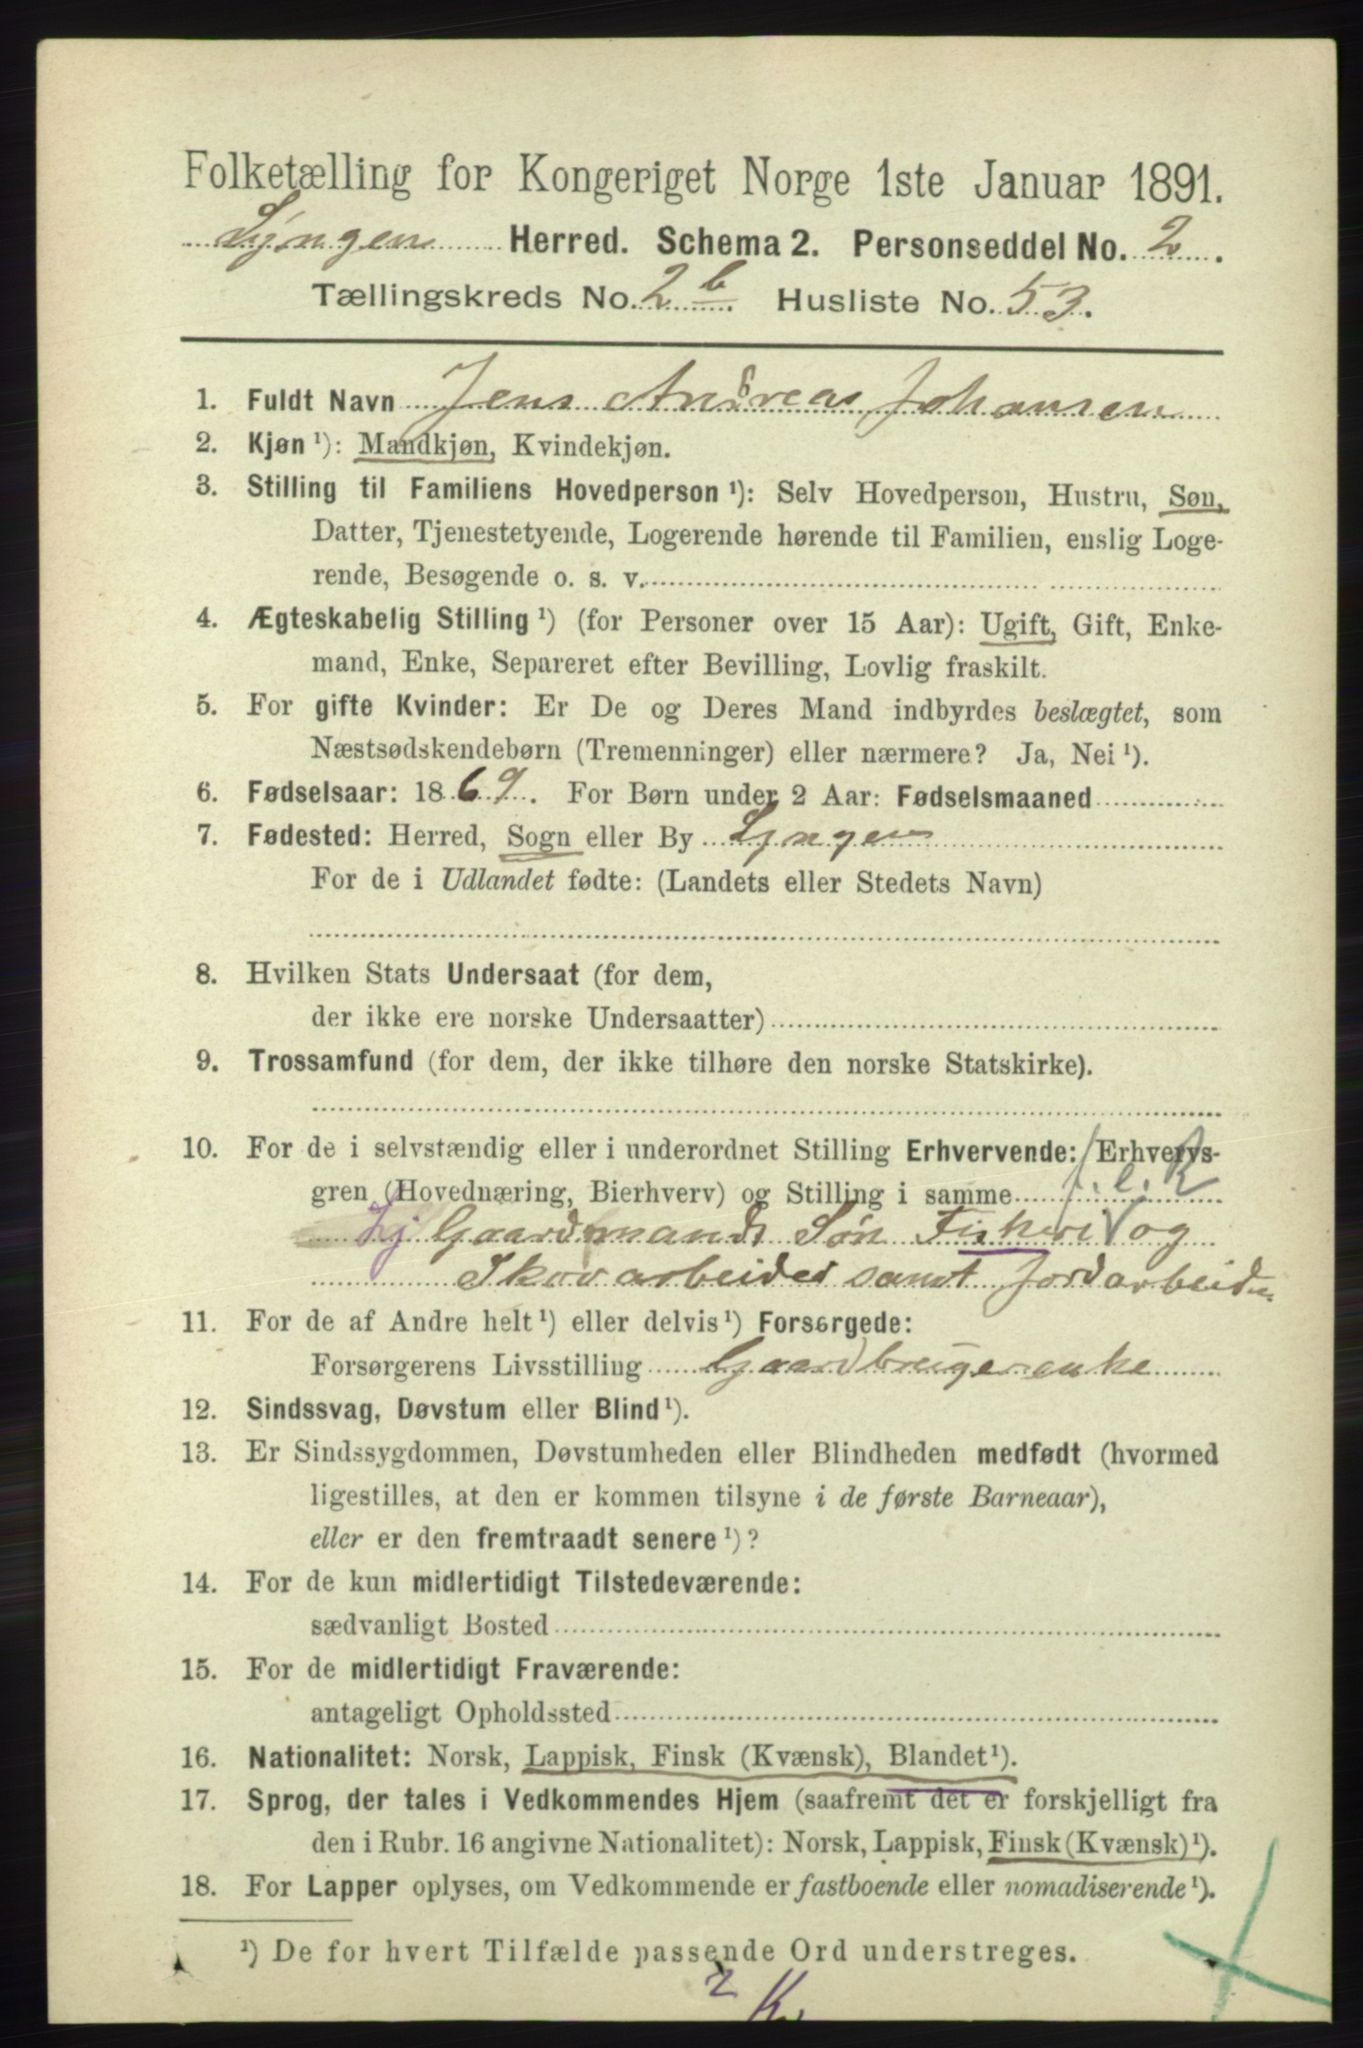 Folketælling for Kongeriget Norge 1ste Januar 1891.
Lyngen Herred. Schema 2. Personseddel No. 2.
Tællingskreds No. 2 b. Husliste No. 53.
1. Fuldt Navn Jens Andreas Johansen
2. Kjøn ¹): Mandkjøn, Kvindekjøn.
3. Stilling til Familiens Hovedperson ¹): Selv Hovedperson, Hustru, Søn,
Datter, Tjenestetyende, Logerende hørende til Familien, enslig Loge-
rende, Besøgende o. s. v.
4. Ægteskabelig Stilling ¹) (for Personer over 15 Aar): Ugift, Gift, Enke-
mand, Enke, Separeret efter Bevilling, Lovlig fraskilt.
5. For gifte Kvinder: Er De og Deres Mand indbyrdes beslægtet, som
Næstsødskendebørn (Tremenninger) eller nærmere? Ja, Nei ¹).
6. Fødselsaar: 1869. For Børn under 2 Aar: Fødselsmaaned
7. Fødested: Herred, Sogn eller By Lyngen
For de i Udlandet fødte: (Landets eller Stedets Navn)
8. Hvilken Stats Undersaat (for dem,
der ikke ere norske Undersaatter)
9. Trossamfund (for dem, der ikke tilhøre den norske Statskirke).
10. For de i selvstændig eller i underordnet Stilling Erhvervende: Erhvervs-
gren (Hovednæring, Bierhverv) og Stilling i samme
Gaardmands Søn Fiskeri og
Skovarbeider samt Jordarbeider
11. For de af Andre helt ¹) eller delvis ¹) Forsørgede:
Forsørgerens Livsstilling Gaardbrugerenke
12. Sindssvag, Døvstum eller Blind ¹).
13. Er Sindssygdommen, Døvstumheden eller Blindheden medfødt (hvormed
ligestilles, at den er kommen tilsyne i de første Barneaar),
eller er den fremtraadt senere ¹)?
14. For de kun midlertidigt Tilstedeværende:
sædvanligt Bosted
15. For de midlertidigt Fraværende:
antageligt Opholdssted
16. Nationalitet: Norsk, Lappisk, Finsk (Kvænsk), Blandet ¹).
17. Sprog, der tales i Vedkommendes Hjem (saafremt det er forskjelligt fra
den i Rubr. 16 angivne Nationalitet): Norsk, Lappisk, Finsk (Kvænsk) ¹).
18. For Lapper oplyses, om Vedkommende er fastboende eller nomadiserende ¹).
¹) De for hvert Tilfælde passende Ord understreges.
2 K.